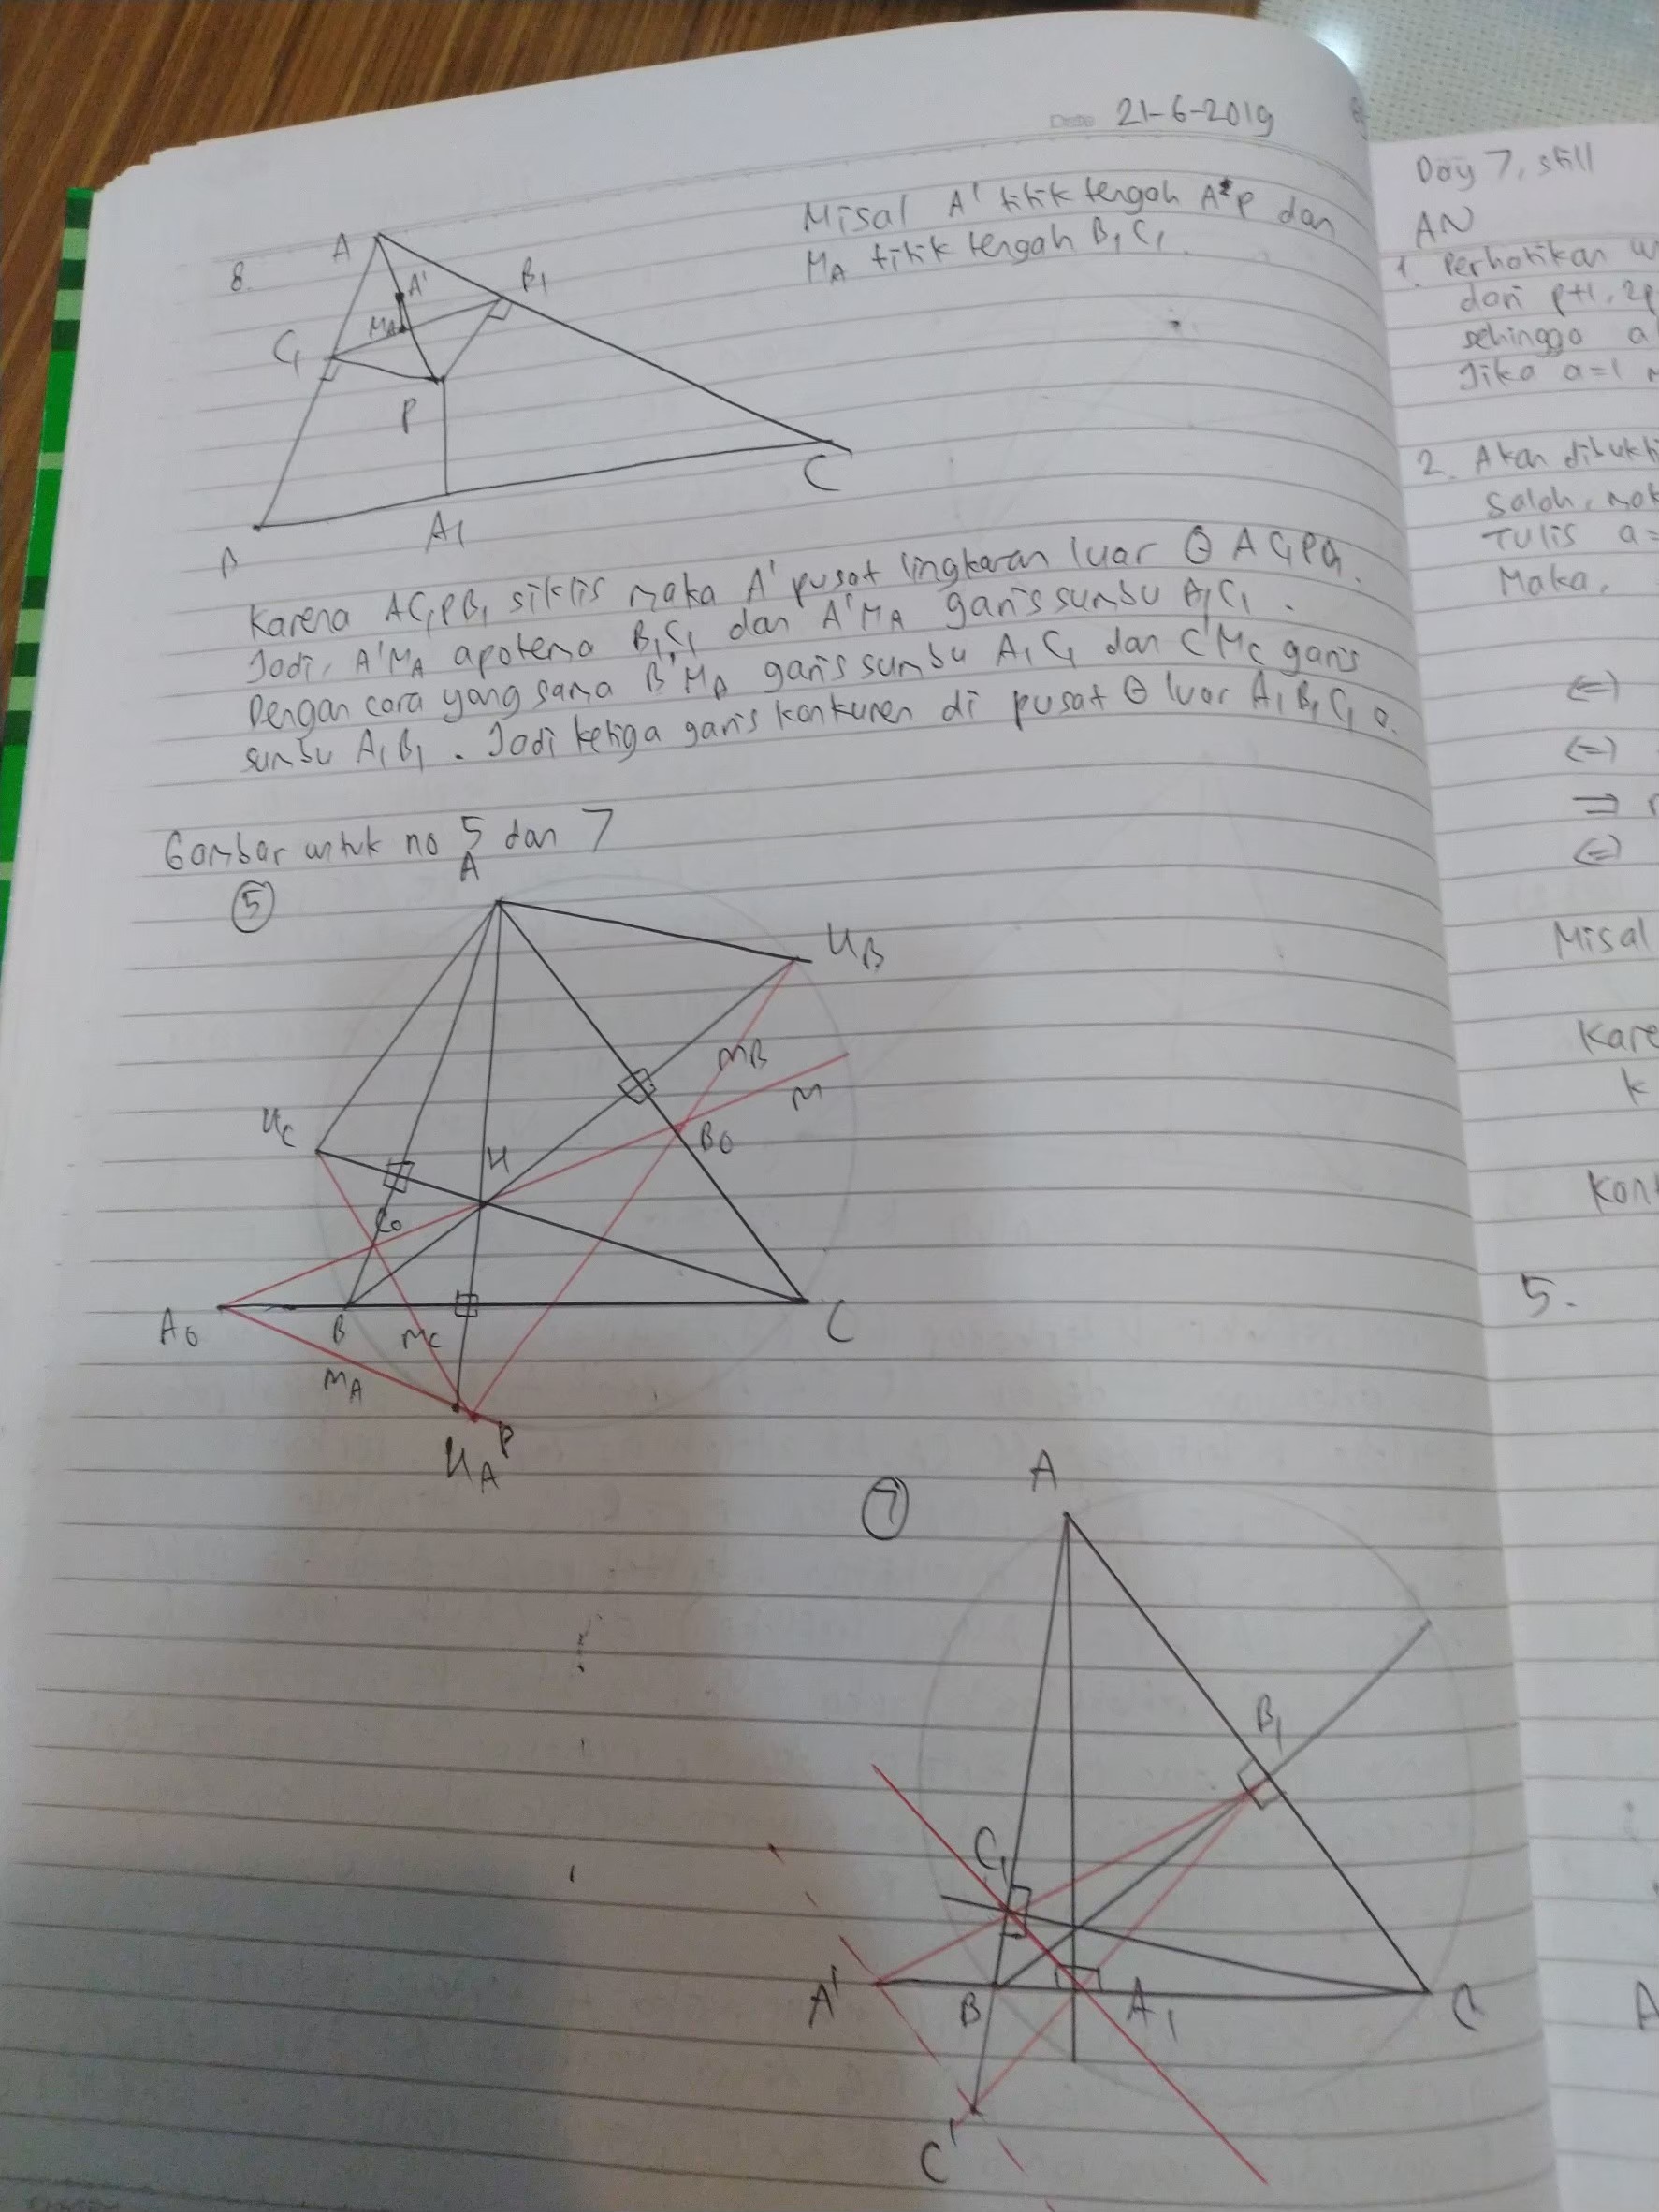 Date 21-6-2019
8.
A
A'
B1
MA
C1
P
C
B
A1
Misal A' titik tengah AP dan
MA titik tengah B1C1.
Karena AC1PB1 siklis maka A' pusat lingkaran luar
Jadi, A'MA apotema B1C1 dan A'MA garis sumbu B1C1.
Dengan cara yang sama B'MB garis sumbu A1C1 dan C'MC garis
sumbu A1B1. Jadi ketiga garis konkuren di pusat ⊙ luar A1B1C1
Gambar untuk no 5 dan 7
5
A
HB
MB
M
HC
H
B0
C0
A0
B
MC
C
MA
P
HA
7
A
B1
C1
A'
B
A1
C
C'
Day 7, still
AN
1. Perhatikan
dari p+1, 2p
sehingga a
Jika a=1
2. Akan dibukti
salah, mak
Tulis a=
Maka,
(=)
(=)
⇒
(=)
Misal
Kare
k
Kon
5.
A